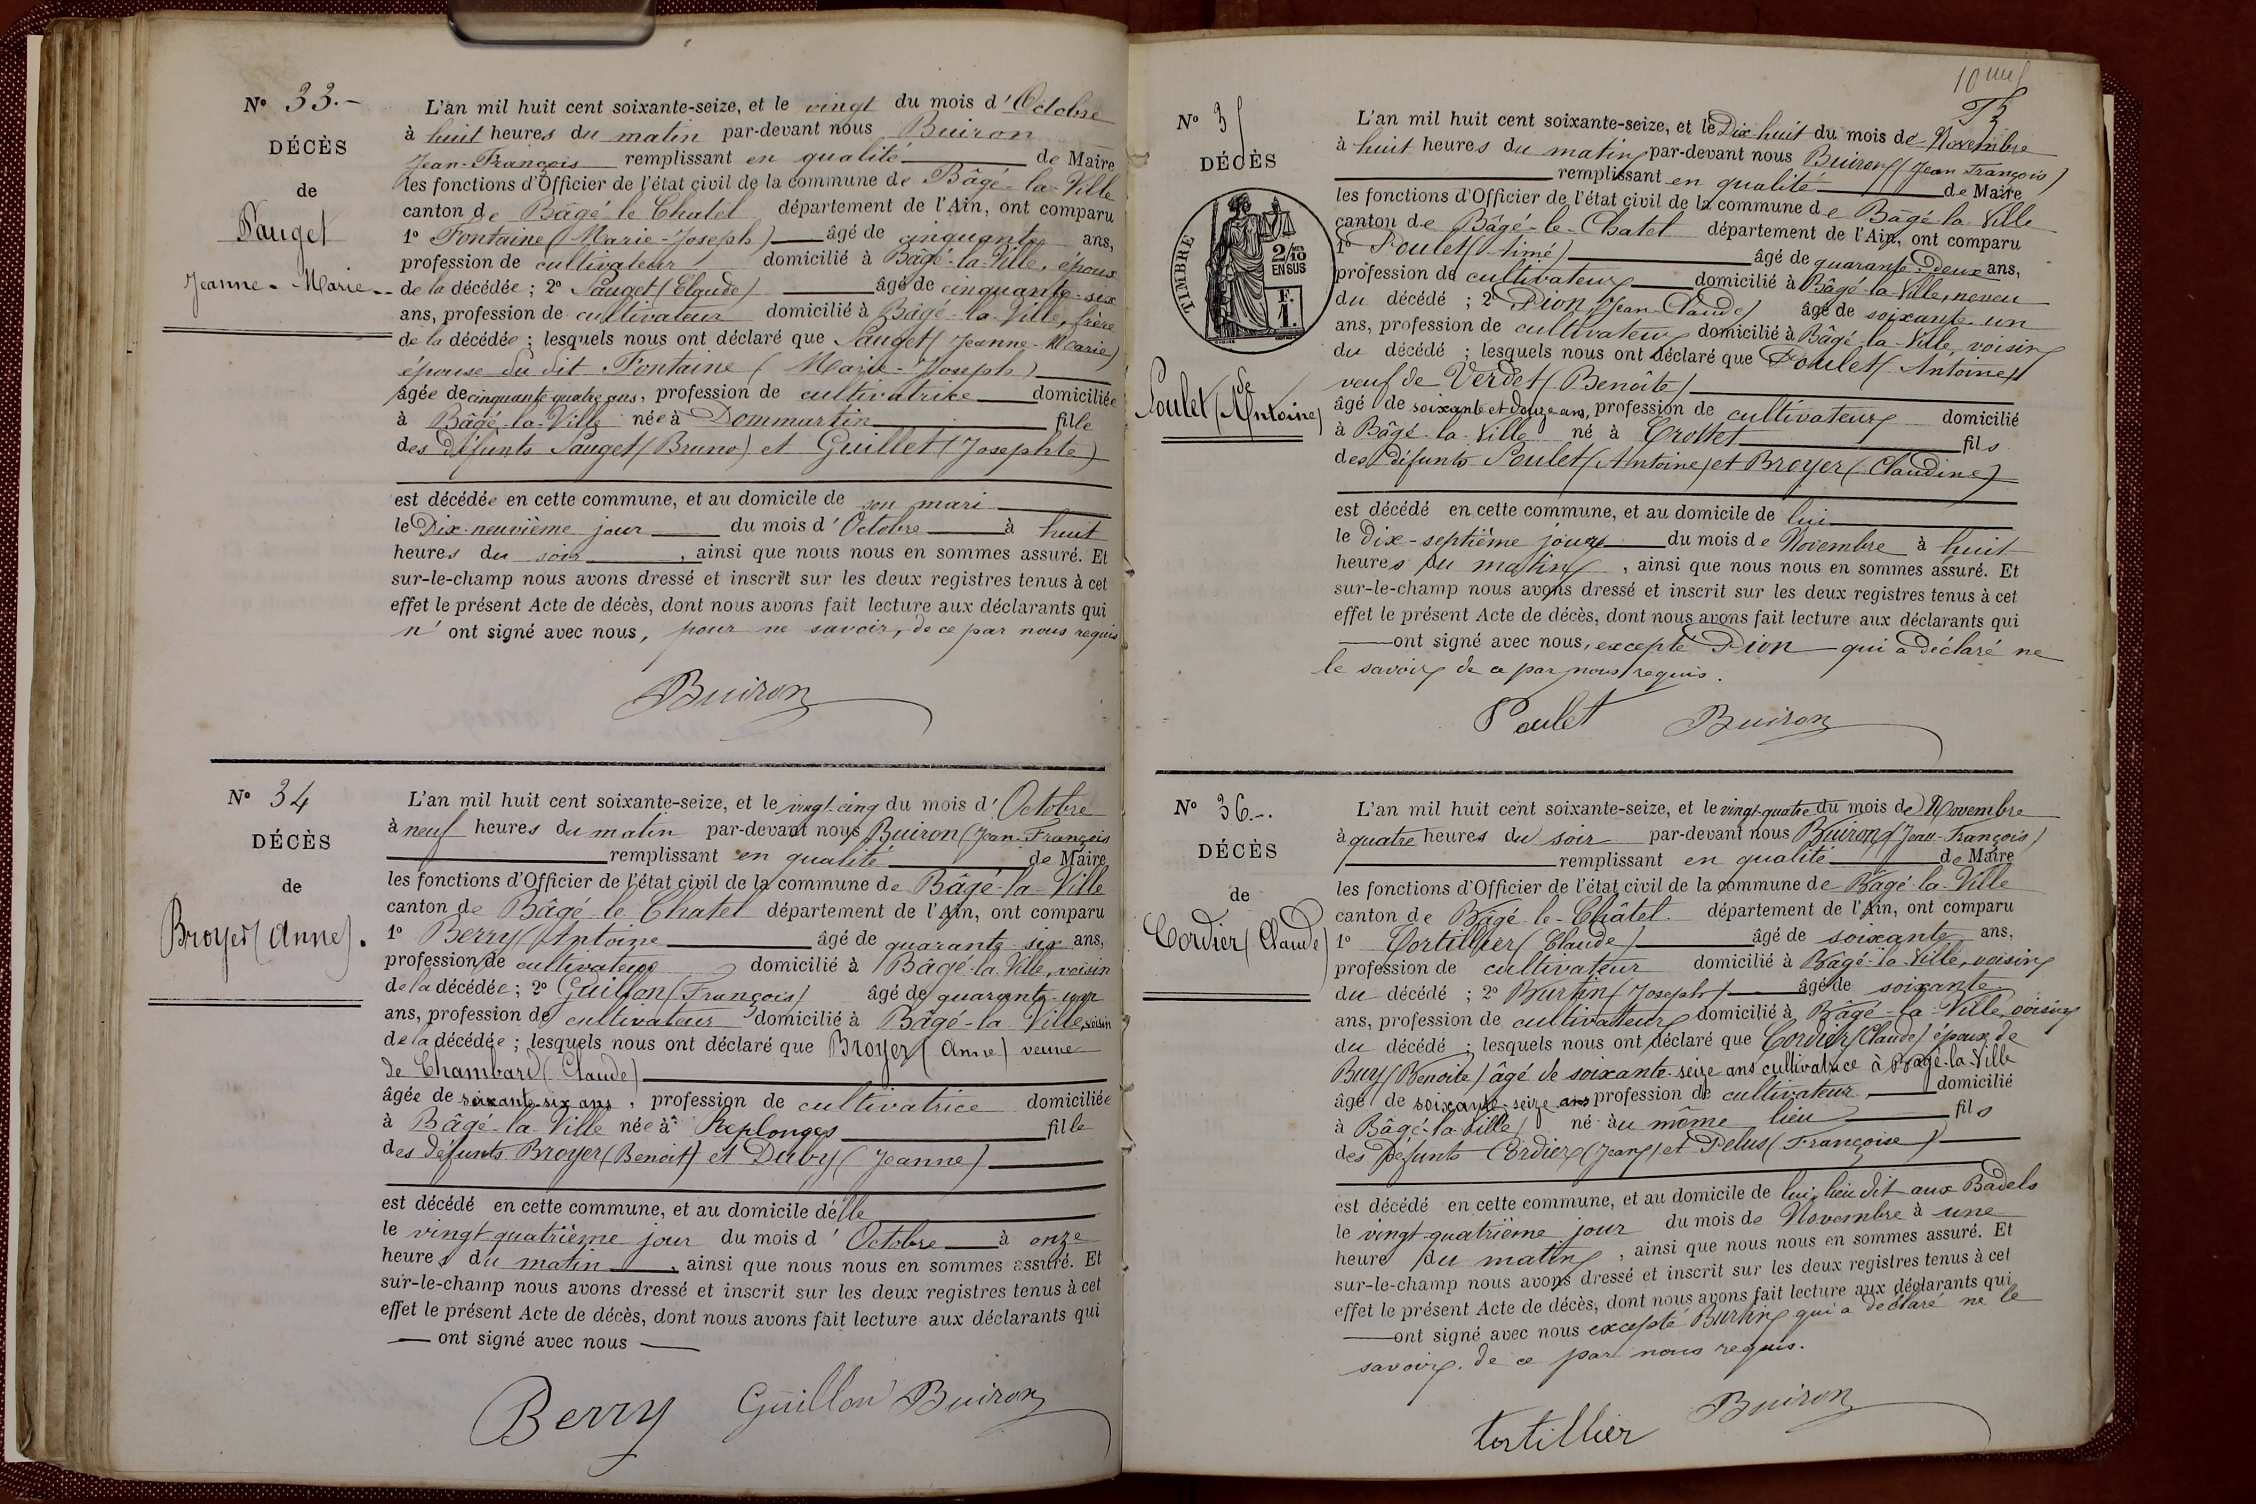 N° 33.-
DÉCÈS
de
Pauget
Jeanne-Marie
L'an mil huit cent soixante-seize, et le vingt du mois d'Octobre
à huit heures du matin par-devant nous Buiron
Jean-François remplissant en qualité de Maire
les fonctions d'Officier de l'état civil de la commune de Bâgé-la-Ville
canton de Bâgé-le-Chatel département de l'Ain, ont comparu
1° Fontaine (Marie-Joseph) âgé de cinquante ans,
profession de cultivateur domicilié à Bâgé-la-Ville, époux
de la décédée ; 2° Pauget (Claude) âgé de cinquante-six
ans, profession de cultivateur domicilié à Bâgé-la-Ville, frère
de la décédée ; lesquels nous ont déclaré que Pauget (Jeanne-Marie)
épouse du dit Fontaine (Marie-Joseph)
âgée de cinquante quatre ans, profession de cultivatrice domiciliée
à Bâgé-la-Ville née à Dommartin fille
des défunts Pauget (Bruno) et Guillet (Josephte)
est décédée en cette commune, et au domicile de son mari
le Dix-neuvième jour du mois d'Octobre à huit
heures du soir, ainsi que nous nous en sommes assuré. Et
sur-le-champ nous avons dressé et inscrit sur les deux registres tenus à cet
effet le présent Acte de décès, dont nous avons fait lecture aux déclarants qui
n'ont signé avec nous, pour ne savoir, de ce par nous requis
Buiron
N° 34
DÉCÈS
de
Broyer (Anne).
L'an mil huit cent soixante-seize, et le vingt-cinq du mois d'Octobre
à neuf heures du matin par-devant nous Buiron (Jean-François
remplissant en qualité de Maire
les fonctions d'Officier de l'état civil de la commune de Bâgé-la-Ville
canton de Bâgé-le-Chatel département de l'Ain, ont comparu
1° Berry (Antoine âgé de quarante-six ans,
profession de cultivateur domicilié à Bâgé-la-Ville, voisin
de la décédée ; 2° Guillon (François) âgé de quarante-un
ans, profession de cultivateur domicilié à Bâgé-la-Ville, voisin
de la décédée ; lesquels nous ont déclaré que Broyer (Anne) veuve
de Chambard (Claude)
âgée de soixante-six ans, profession de cultivatrice domiciliée
à Bâgé-la-Ville née à Replonges fille
des défunts Broyer (Benoit) et Duby (Jeanne)
est décédé en cette commune, et au domicile d'elle
le vingt-quatrième jour du mois d'Octobre à onze
heures du matin, ainsi que nous nous en sommes assuré. Et
sur-le-champ nous avons dressé et inscrit sur les deux registres tenus à cet
effet le présent Acte de décès, dont nous avons fait lecture aux déclarants qui
ont signé avec nous
Berry Guillon Buiron
N° 35
DÉCÈS
de
TIMBRE
2/10
EN SUS
F.
1.
Poulet (Antoine)
L'an mil huit cent soixante-seize, et le Dix-huit du mois de Novembre
à huit heures du matin par-devant nous Buiron (Jean François)
remplissant en qualité de Maire
les fonctions d'Officier de l'état civil de la commune de Bâgé-la-Ville
canton de Bâgé-le-Chatel département de l'Ain, ont comparu
1° Poulet (Aimé) âgé de quarante-Deux ans,
profession de cultivateur domicilié à Bâgé-la-Ville, neveu
du décédé ; 2° Pion (Jean-Claude) âgé de soixante-un
ans, profession de cultivateur domicilié à Bâgé-la-Ville, voisin
du décédé ; lesquels nous ont déclaré que Poulet (Antoine)
veuf de Verdet (Benoîte)
âgé de soixante et douze ans, profession de cultivateur domicilié
à Bâgé-la-Ville né à Crottet fils
des défunts Poulet (Antoine) et Broyer (Claudine)
est décédé en cette commune, et au domicile de lui
le dix-septième jour du mois de Novembre à huit
heures du matin, ainsi que nous nous en sommes assuré. Et
sur-le-champ nous avons dressé et inscrit sur les deux registres tenus à cet
effet le présent Acte de décès, dont nous avons fait lecture aux déclarants qui
ont signé avec nous, excepté Pion qui a déclaré ne
le savoir de ce par nous requis.
Poulet Buiron
N° 36.-.
DÉCÈS
de
Cordier (Claude)
L'an mil huit cent soixante-seize, et le vingt-quatre du mois de Novembre
à quatre heures du soir par-devant nous Buiron (Jean-François)
remplissant en qualité de Maire
les fonctions d'Officier de l'état civil de la commune de Bâgé-la-Ville
canton de Bâgé-le-Châtel département de l'Ain, ont comparu
1° Tortillier (Claude) âgé de soixante ans,
profession de cultivateur domicilié à Bâgé-la-Ville, voisin
du décédé ; 2° Burtin (Joseph) âgé de soixante
ans, profession de cultivateur domicilié à Bâgé-la-Ville, voisin
du décédé ; lesquels nous ont déclaré que Cordier (Claude) époux de
Buy (Benoite) âgé de soixante-seize ans cultivatrice à Bâgé-la-Ville
âgé de soixante-seize ans profession de cultivateur, domicilié
à Bâgé-la-Ville né au même lieu fils
des défunts Cordier (Jean) et Pelus (Françoise)
est décédé en cette commune, et au domicile de lui, lieu dit aux Badels
le vingt-quatrième jour du mois de Novembre à une
heure du matin, ainsi que nous nous en sommes assuré. Et
sur-le-champ nous avons dressé et inscrit sur les deux registres tenus à cet
effet le présent Acte de décès, dont nous avons fait lecture aux déclarants qui
ont signé avec nous excepté Burtin qui a déclaré ne le
savoir. de ce par nous requis.
tortillier Buiron